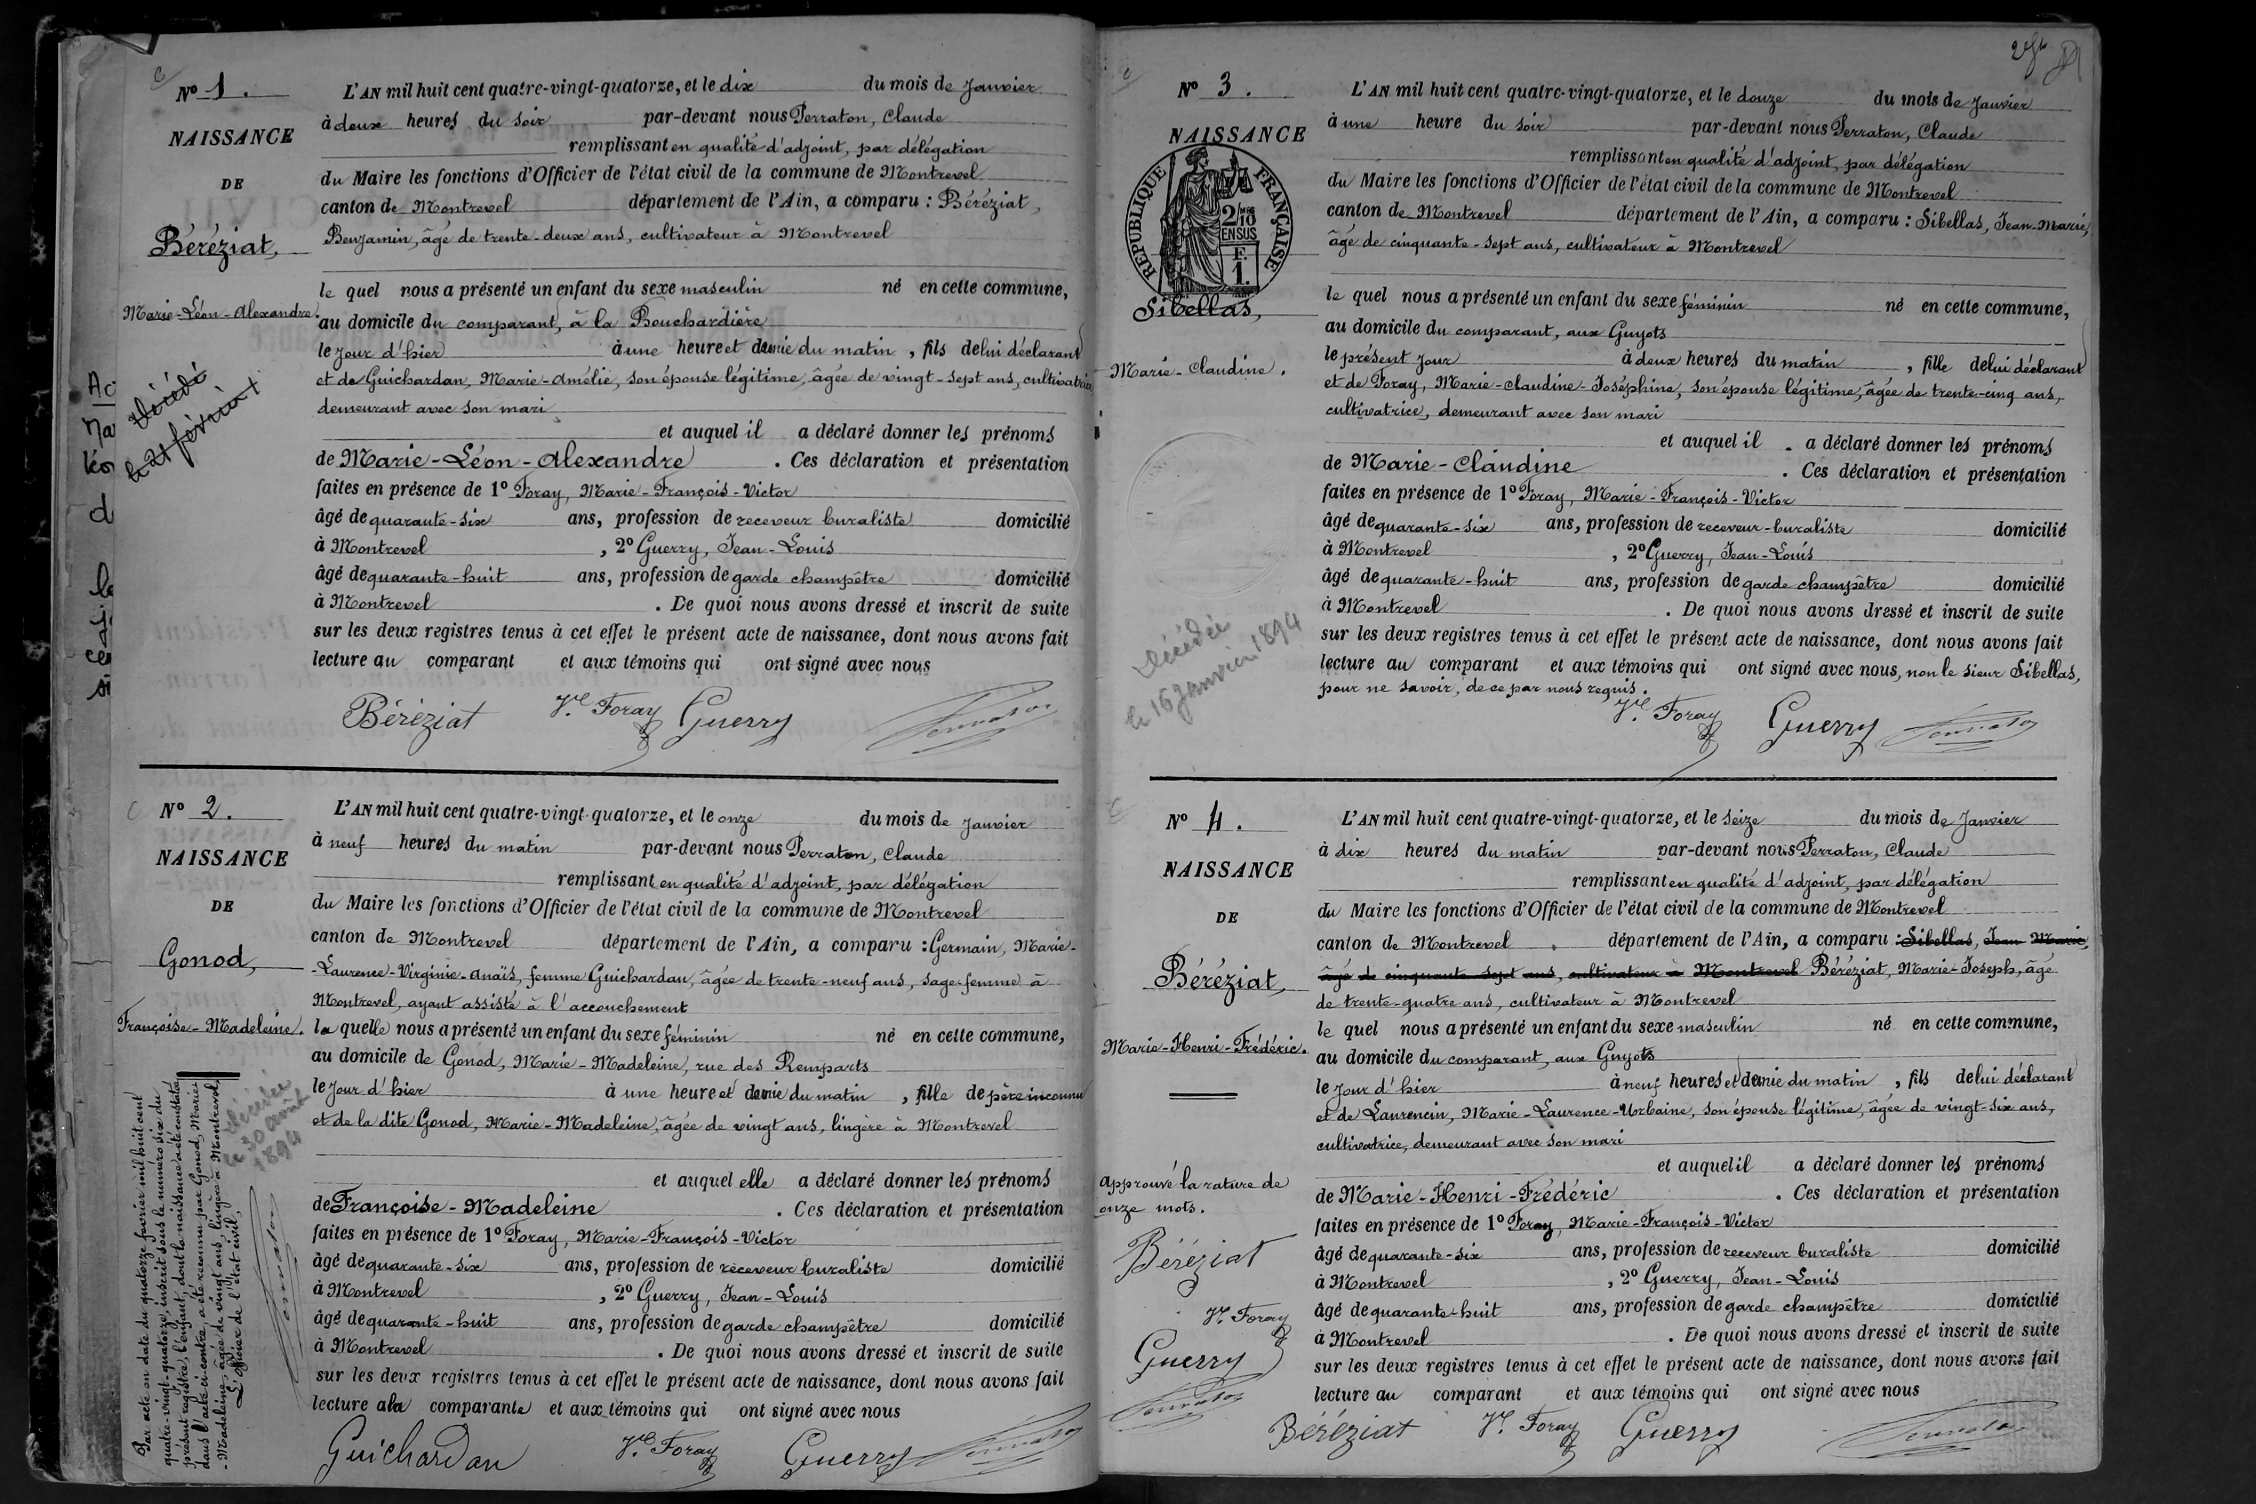 Nº 1.
NAISSANCE
DE
Béréziat,
Marie-Léon-Alexandre.
Décédé
le 21 février
L'AN mil huit cent quatre-vingt-quatorze, et le dix du mois de Janvier
à deux heures du soir par-devant nous Perraton, Claude
remplissant en qualité d'adjoint, par délégation
du Maire les fonctions d'Officier de l'état civil de la commune de Montrevel
canton de Montrevel département de l'Ain, a comparu : Béréziat,
Benjamin, âgé de trente-deux ans, cultivateur à Montrevel
le quel nous a présenté un enfant du sexe masculin né en cette commune,
au domicile du comparant, à la Bouchardière
le jour d'hier à une heure et demie du matin, fils de lui déclarant
et de Guichardan, Marie-Amélie, son épouse légitime, âgée de vingt-sept ans, cultivatrice
demeurant avec son mari
et auquel il a déclaré donner les prénoms
de Marie-Léon-Alexandre. Ces déclaration et présentation
faites en présence de 1º Foray, Marie-François-Victor
âgé de quarante-six ans, profession de receveur buraliste domicilié
à Montrevel, 2º Guerry, Jean-Louis
âgé de quarante-huit ans, profession de garde champêtre domicilié
à Montrevel. De quoi nous avons dressé et inscrit de suite
sur les deux registres tenus à cet effet le présent acte de naissance, dont nous avons fait
lecture au comparant et aux témoins qui ont signé avec nous
Béréziat Vr. Foray Guerry Perraton
Nº 2.
NAISSANCE
DE
Gonod,
Françoise-Madeleine.
Décédée
le 30 août
1894
Par acte en date du quatorze février mil huit cent
quatre-vingt-quatorze, inscrit sous le numéro six du
présent registre, l'enfant, dont la naissance a été constatée
dans l'acte ci-contre, a été reconnu par Gonod, Marie
-Madeleine, âgée de vingt ans, lingère à Montrevel,
L'officier de l'état civil,
Perraton
L'AN mil huit cent quatre-vingt-quatorze, et le onze du mois de Janvier
à neuf heures du matin par-devant nous Perraton, Claude
remplissant en qualité d'adjoint, par délégation
du Maire les fonctions d'Officier de l'état civil de la commune de Montrevel
canton de Montrevel département de l'Ain, a comparu : Germain, Marie-
-Laurence-Virginie-Anaïs, femme Guichardan, âgée de trente-neuf ans, sage-femme à
Montrevel, ayant assisté à l'accouchement
la quelle nous a présenté un enfant du sexe féminin né en cette commune,
au domicile de Gonod, Marie-Madeleine, rue des Remparts
le jour d'hier à une heure et demie du matin, fille de père inconnu
et de la dite Gonod, Marie-Madeleine, âgée de vingt ans, lingère à Montrevel
et auquel elle a déclaré donner les prénoms
de Françoise-Madeleine. Ces déclaration et présentation
faites en présence de 1º Foray, Marie-François-Victor
âgé de quarante-six ans, profession de receveur buraliste domicilié
à Montrevel, 2º Guerry, Jean-Louis
âgé de quarante-huit ans, profession de garde champêtre domicilié
à Montrevel. De quoi nous avons dressé et inscrit de suite
sur les deux registres tenus à cet effet le présent acte de naissance, dont nous avons fait
lecture à la comparante et aux témoins qui ont signé avec nous
Guichardan Vr. Foray Guerry Perraton
Nº 3.
NAISSANCE
REPUBLIQUE FRANÇAISE
2/10
EN SUS
F.
1.
Sibellas,
Marie-Claudine.
Décédée
le 16 Janvier 1894
L'AN mil huit cent quatre-vingt-quatorze, et le douze du mois de Janvier
à une heure du soir par-devant nous Perraton, Claude
remplissant en qualité d'adjoint, par délégation
du Maire les fonctions d'Officier de l'état civil de la commune de Montrevel
canton de Montrevel département de l'Ain, a comparu : Sibellas, Jean-Marie,
âgé de cinquante-sept ans, cultivateur à Montrevel
le quel nous a présenté un enfant du sexe féminin né en cette commune,
au domicile du comparant, aux Guyots
le présent jour à deux heures du matin, fille de lui déclarant
et de Foray, Marie-Claudine-Joséphine, son épouse légitime, âgée de trente-cinq ans,
cultivatrice, demeurant avec son mari
et auquel il a déclaré donner les prénoms
de Marie-Claudine. Ces déclaration et présentation
faites en présence de 1º Foray, Marie-François-Victor
âgé de quarante-six ans, profession de receveur-buraliste domicilié
à Montrevel, 2º Guerry, Jean-Louis
âgé de quarante-huit ans, profession de garde champêtre domicilié
à Montrevel. De quoi nous avons dressé et inscrit de suite
sur les deux registres tenus à cet effet le présent acte de naissance, dont nous avons fait
lecture au comparant et aux témoins qui ont signé avec nous, non le sieur Sibellas,
pour ne savoir, de ce par nous requis.
Vr. Foray Guerry Perraton
Nº 4.
NAISSANCE
DE
Béréziat,
Marie-Henri-Frédéric.
Approuvé la rature de
onze mots.
Béréziat
Vr. Foray
Guerry
Perraton
L'AN mil huit cent quatre-vingt-quatorze, et le seize du mois de Janvier
à dix heures du matin par-devant nous Perraton, Claude
remplissant en qualité d'adjoint, par délégation
du Maire les fonctions d'Officier de l'état civil de la commune de Montrevel
canton de Montrevel département de l'Ain, a comparu : Sibellas, Jean Marie,
âgé de cinquante sept ans, cultivateur à Montrevel Béréziat, Marie-Joseph, âgé
de trente-quatre ans, cultivateur à Montrevel
le quel nous a présenté un enfant du sexe masculin né en cette commune,
au domicile du comparant, aux Guyots
le jour d'hier à neuf heures et demie du matin, fils de lui déclarant
et de Laurencin, Marie-Laurence-Urbaine, son épouse légitime, âgée de vingt-six ans,
cultivatrice, demeurant avec son mari
et auquel il a déclaré donner les prénoms
de Marie-Henri-Frédéric. Ces déclaration et présentation
faites en présence de 1º Foray, Marie-François-Victor
âgé de quarante-six ans, profession de receveur buraliste domicilié
à Montrevel, 2º Guerry, Jean-Louis
âgé de quarante-huit ans, profession de garde champêtre domicilié
à Montrevel. De quoi nous avons dressé et inscrit de suite
sur les deux registres tenus à cet effet le présent acte de naissance, dont nous avons fait
lecture au comparant et aux témoins qui ont signé avec nous
Béréziat Vr. Foray Guerry Perraton